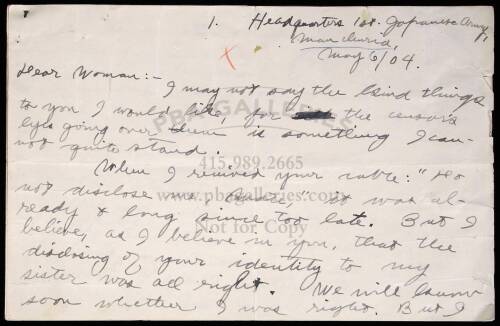 1. Headquarters 1st. Japanese Army,
Manchuria,
May 6/04.
Dear Woman:-
I may not say the kind things
to you I would like, for the censor's
eyes going over them is something I can-
not quite stand.
When I received your cable: "Do
not disclose me [illegible]," it was al-
ready & long since too late. But I
believe, as I believe in you, that the
disclosing of your identity to my
sister was all right. We will know
soon whether I was right. But I
PBA GALLERIES
415.989.2665
www.pbagalleries.com
Not for Copy